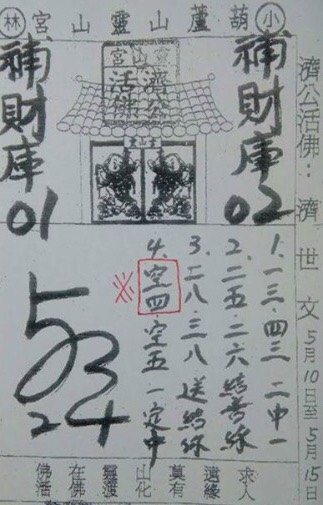 小
葫蘆山靈山宮
林
濟公活佛:濟世文
5月10日至5月15日
補財庫02
靈山宮
濟公
活佛
靈山宮
補財庫01
1.一三.四三 二中一
2.二五.二六 結善緣
3.二八.三八 送結緣
4.空四.空五 一定中
※
5
3
2
4
求人
遺緣
莫有
山化
靈渡
在佛
佛活